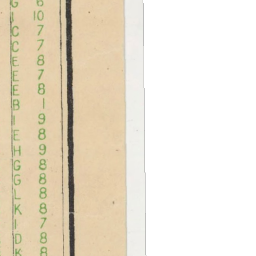 G 6
I 10
C 7
C 7
E 8
E 7
E 8
B 1
I 9
E 8
H 9
G 8
G 8
L 8
K 8
I 7
D 8
K 8